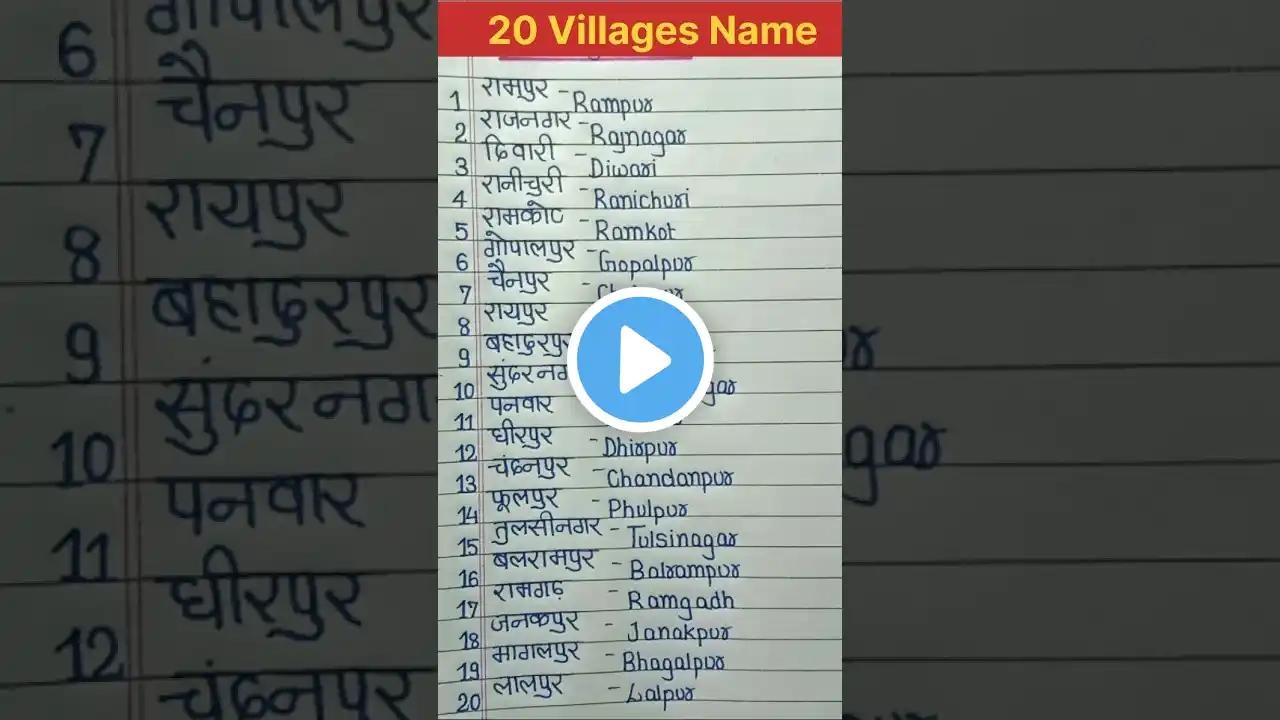 20 Villages Name
1 रामपुर - Rampur
2 राजनगर - Rajnagar
3 दिवारी - Diwari
4 रानीचुरी - Ranichuri
5 रामकोट - Ramkot
6 गोपालपुर - Gopalpur
7 चैनपुर -
8 रायपुर
9 बहादुरपुर
10 सुंदरनग gar
11 पनवार
12 धीरपुर - Dhirpur
13 चंदनपुर - Chandanpur
14 फूलपुर - Phulpur
15 तुलसीनगर - Tulsinagar
16 बलरामपुर - Balrampur
17 रामगढ़ - Ramgadh
18 जनकपुर - Janakpur
19 भागलपुर - Bhagalpur
20 लालपुर - Lalpur
6 गोपालपुर
7 चैनपुर
8 रायपुर
9 बहादुरपुर
10 सुंदरनग gar
11 पनवार
12 धीरपुर
चंदनपुर